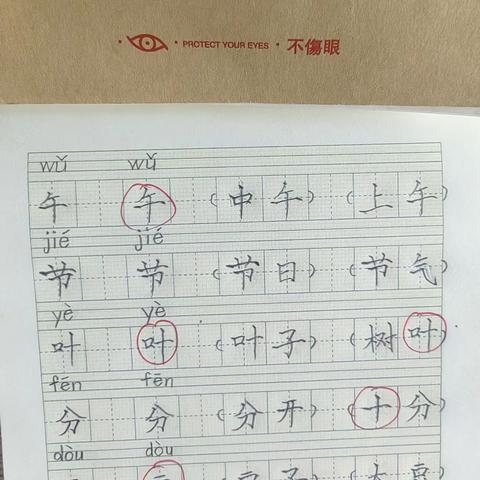 PROTECT YOUR EYES · 不傷眼
wǔ wǔ
午 午 (中午) (上午)
jié jié
节 节 (节日) (节气)
yè yè
叶 叶 (叶子) (树叶)
fēn fēn
分 分 (分开) (十分)
dòu dòu